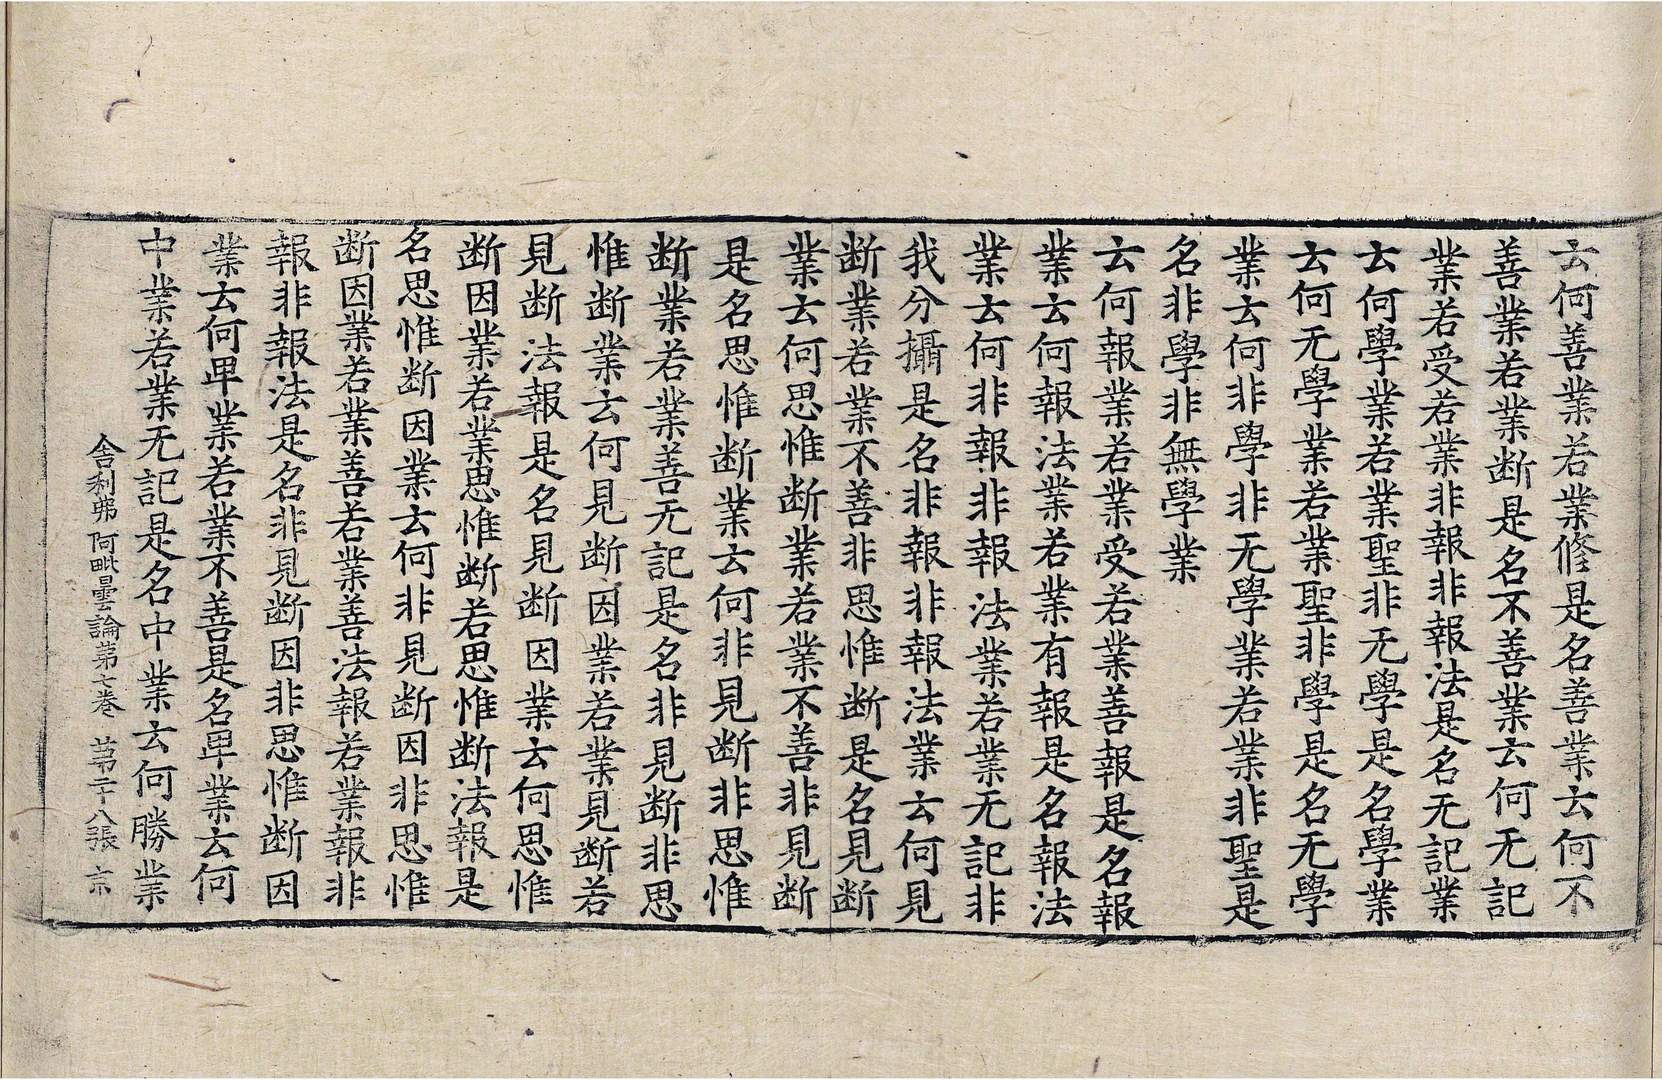 云何善業若業修是名善業云何不
善業若業断是名不善業云何无記
業若受若業非報非報法是名无記業
云何學業若業聖非无學是名學業
云何无學業若業聖非學是名无學
業云何非學非无學業若業非聖是
名非學非無學業
云何報業若業受若業善報是名報
業云何報法業若業有報是名報法
業云何非報非報法業若業无記非
我分攝是名非報非報法業云何見
断業若業不善非思惟断是名見断
業云何思惟断業若業不善非見断
是名思惟断業云何非見断非思惟
断業若業善无記是名非見断非思
惟断業云何見断因業若業見断若
見断法報是名見断因業云何思惟
断因業若業思惟断若思惟断法報是
名思惟断因業云何非見断因非思惟
断因業若業善若業善法報若業報非
報非報法是名非見断因非思惟断因
業云何卑業若業不善是名卑業云何
中業若業无記是名中業云何勝業
舎利弗阿毗曇論第七卷 苐二十八張 京